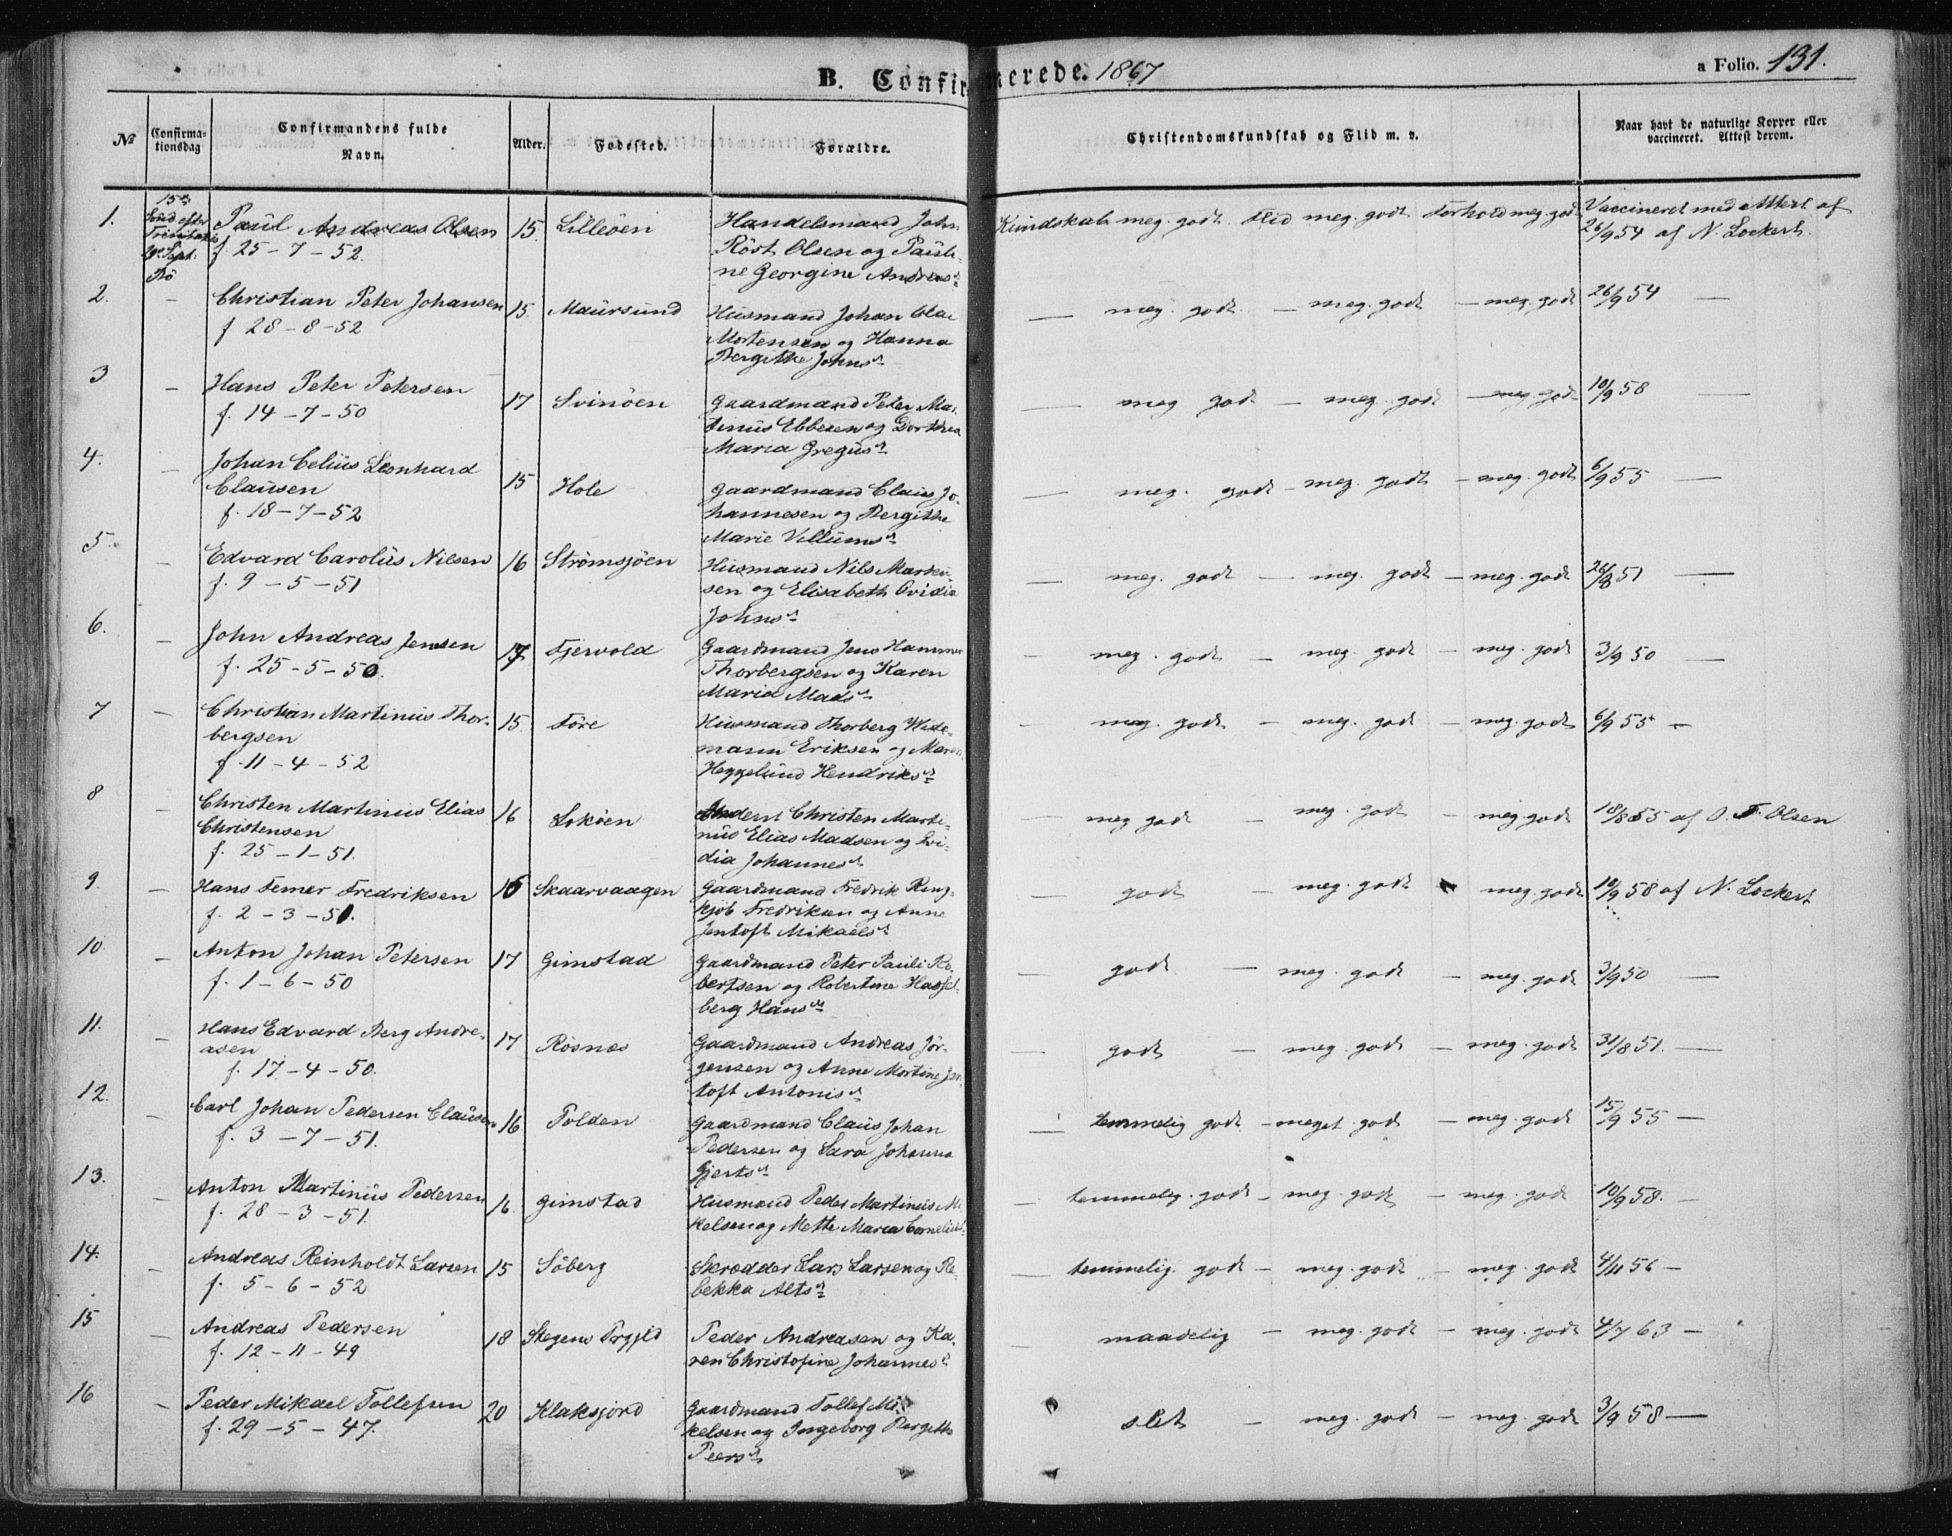 B. Confirmerede. 1867
a Folio. 131.
No Confirmationsdag Confirmandens fulde Navn. Alder. Fødested. Forældre. Christendomskundskab og Flid m. v. Naar havt de naturlige Kopper eller vaccineret. Attest derom.
1. 15de Sönd. efter Trinitatis Sept. Bö
Paul Andreas Olsen 15 Lilleöen Handelsmand John
f. 25-7-52. Röst Olsen og Pauli-
ne Georgine Andreasd.
Kundskab meg. godt. Flid meg. godt Forhold meg. godt Vaccineret med Attest af
26/9 54 af N. Lockert.
2. — Christian Peter Johansen 15. Maursund Husmand Johan
f 28-8-52 Mortensen og Hanna
Bergithe Johnsd.
— meg. godt — meg. godt — meg. godt 26/9 54 —
3 — Hans Peter Petersen 17 Svinöen Gaardmand Peter Mar-
f. 14-7-50 tinus Ebbesen og Dorthea
Maria Gregusd.
— meg godt — meg. godt — meg. godt 10/9 58 —
4. — Johan Celius Leonhard 15 Hole Gaardmand Claus Jo-
Clausen hannesen og Bergithe
f. 18-7-52 Marie Villumsd.
— meg. godt — meg. godt — meg. godt 6/9 55 —
5. — Edvard Carolus Nilsen 16 Strømsjöen Husmand Nils Marku-
f. 9-5-51 sen og Elisabeth Ovidia
Johnsd.
— meg. godt — meg. godt — meg. godt 26/8 51 —
6. — John Andreas Jensen 17 Fjervold Gaardmand Jens Hammer
f. 25-5-50. Thorbergsen og Karen
Maria Madsd.
— meg. godt — meg. godt — meg. godt 3/9 50 —
7 — Christian Martinius Thor- 15. Före Husmand Thorberg Wide-
bergsen mann Eriksen og Maren
f. 11-4-52 Heggelund Hendriksd.
— meg. godt — meg. godt — meg. godt 6/9 55 —
8 — Christen Martinius Elias 16 Loköen Christen Marti-
Christensen nus Elias Madsen og Lvi-
f. 25-1-51. dia Johannesd.
— meg godt — meg. godt — meg. godt 18/8 55 af O. F. Olsen
9. — Hans Femer Fredriksen 16 Skaarvaagen Gaardmand Fredrik Ring-
f. 2-3-51. kjöb Fredriksen og Anne
Jentoft Mikaelsd.
— godt — meg. godt meg. godt 10/9 58 af N. Lockert
10. — Anton Johan Petersen 17 Gimstad Gaardmand Peter Pauli Ro-
f. 1-6-50 bertsen og Robertine Hassel-
berg Hansd.
— godt — meg. godt — meg. godt 3/9 50 —
11. — Hans Edvard Berg Andre- 17 Rösnes Gaardmand Andreas Jör-
asen gensen og Anne Martine Jen-
f. 17-4-50. toft Antonisd.
— godt — meg. godt — meg. godt 31/8 51. —
12. — Carl Johan Pedersen Clausen 16 Polden Gaardmand Claus Johan
f. 3-7-51. Pedersen og Sara Johanna
Gjertsd.
— temmelig godt — meget godt — meg. godt 15/9 55 —
13. — Anton Martinius Pedersen 16 Gimstad Husmand Peder Martinus Mi-
f. 28-3-51. kelsen og Mette Maria Corneliusd.
— temmelig godt — meg. godt — meg. godt 10/9 58. —
14. — Andreas Reinholdt Larsen 15 Söberg Skrædder Lars Larsen og Re-
f. 5-6-52 bekka Altsd.
— temmelig. godt — meg. godt — meg. godt 4/11 56 —
15 — Andreas Pedersen 18 Stegens Prgjld Peder Andreasen og Ka-
f. 12-11-49 ren Christofine Johannesd.
maadelig — meg. godt — meg. godt 4/7 63 —
16 — Peder Mikael Tollefsen 20 Klaksjord Gaardmand Tollef Mi-
f. 29-5-47. kelsen og Ingeborg Bergitte
Peersd.
slet — meg. godt — meg. godt 3/9 58 —